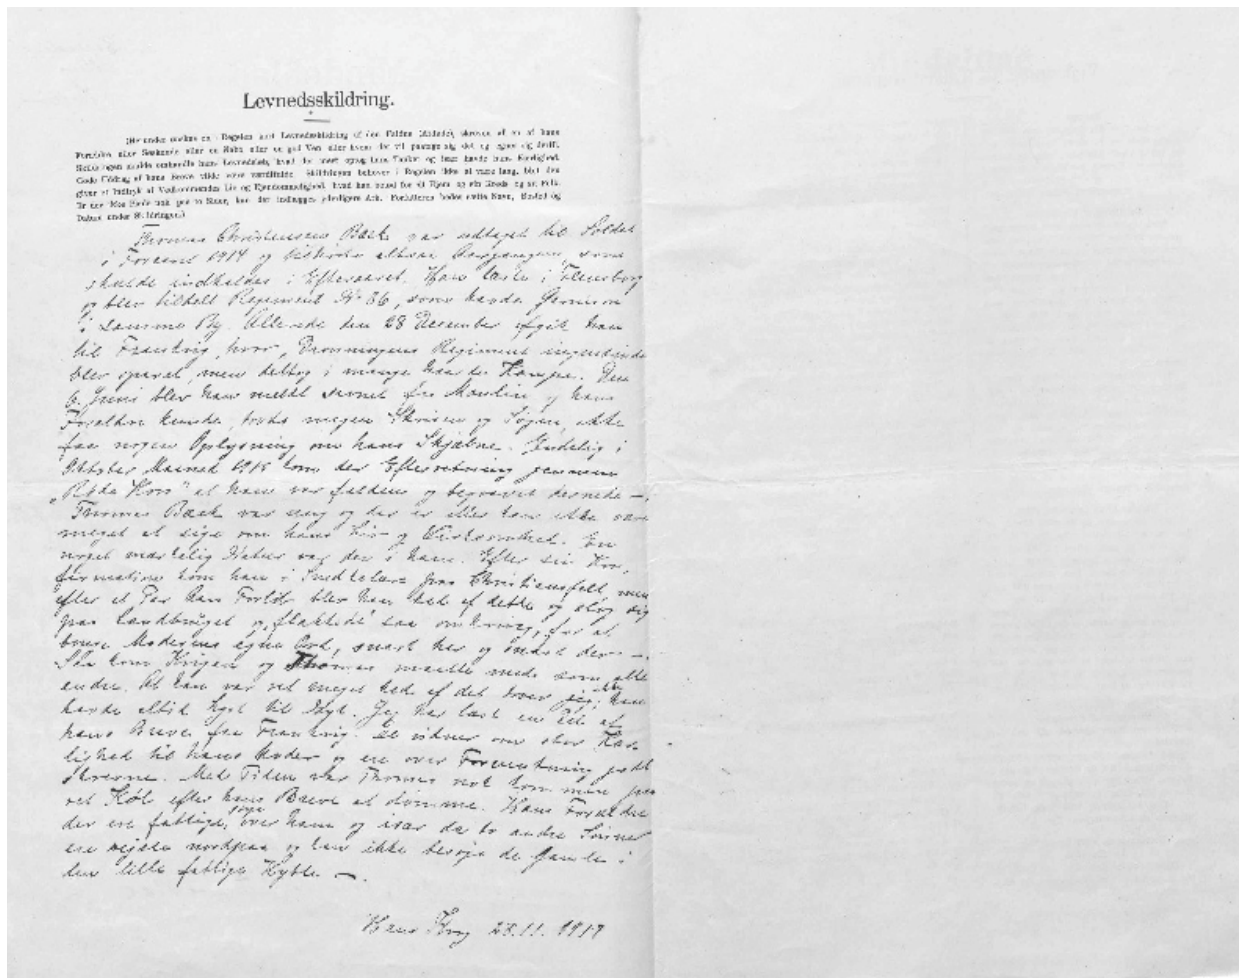 Levnedsskildring.
(Her under ønskes en i Regelen kort Levnedsskildring af den Faldne (Afdøde), skreven af en af hans
Forældre eller Søskende eller en Nabo eller en god Ven eller hvem der vil paatage sig det og egner sig dertil.
Skildringen skulde omhandle hans Levnedsløb, hvad der mest optog hans Tanker og især havde hans Kærlighed.
Gode Uddrag af hans Breve vilde være værdifulde. Skildringen behøver i Regelen ikke at være lang, blot den
giver et Indtryk af Vedkommendes Liv og Ejendommelighed, hvad han betød for sit Hjem og sin Kreds og sit Folk.
Er der ikke Plads nok paa to Sider, kan der indlægges yderligere Ark. Forfatteren bedes sætte Navn, Bosted og
Datum under Skildringen.)
Thomas Christensen Back var udtaget til Soldat
i Foraaret 1914 og tilhørte altsaa Aargangen, som
skulde indkaldes i Efteraaret. Han i Flensborg
og blev tildelt Regiment Nr 86, som havde Garnison
i samme By. Allerede den 28 December afgik han
til Frankrig, hvor „Dronningens Regiment ingensinde
blev sparet, men deltog i mange haarde Kampe. Den
6. Juni blev han meldt savnet fra Moulin og hans
Forældre kunde, trods megen Skriven og Søgen, ikke
faa nogen Oplysning om hans Skjæbne. Endelig i
Oktober Maaned kom der Efterretning gennem
„Røde Kors" at han var falden og begravet dernede —.
Thomas Back var ung og der er eller kan ikke være
meget at sige om hans Liv og Virksomhed. En
noget mærkelig Natur var der i ham. Efter sin Kon-
firmation kom han i Smedelære paa Christiansfelt, men
efter et Par Aars Forløb blev han ked af dette og slog sig
paa Landbruget og „flakkede" saa omkring, for at
bruge Moderens egne Ord, snart her og snart der —.
Saa kom Krigen og Thomas maatte med som alle
andre. At han var ret meget ked af det tror jeg ikke, han
havde altid Lyst til Dyst. Jeg har læst en Del af
hans Breve fra Frankrig. De vidner om stor Kær-
lighed til hans Moder og en over Forventning godt
skrevne. Med Tiden var Thomas nok kommen paa
ret Køl efter hans Breve at dømme. Hans Forældre
der ere fattige, sørge over ham og især da to andre Sønner
ere rejste nordpaa og kan ikke besøge de Gamle i
den lille fattige Hytte. —.
Hans 28.11. 1919